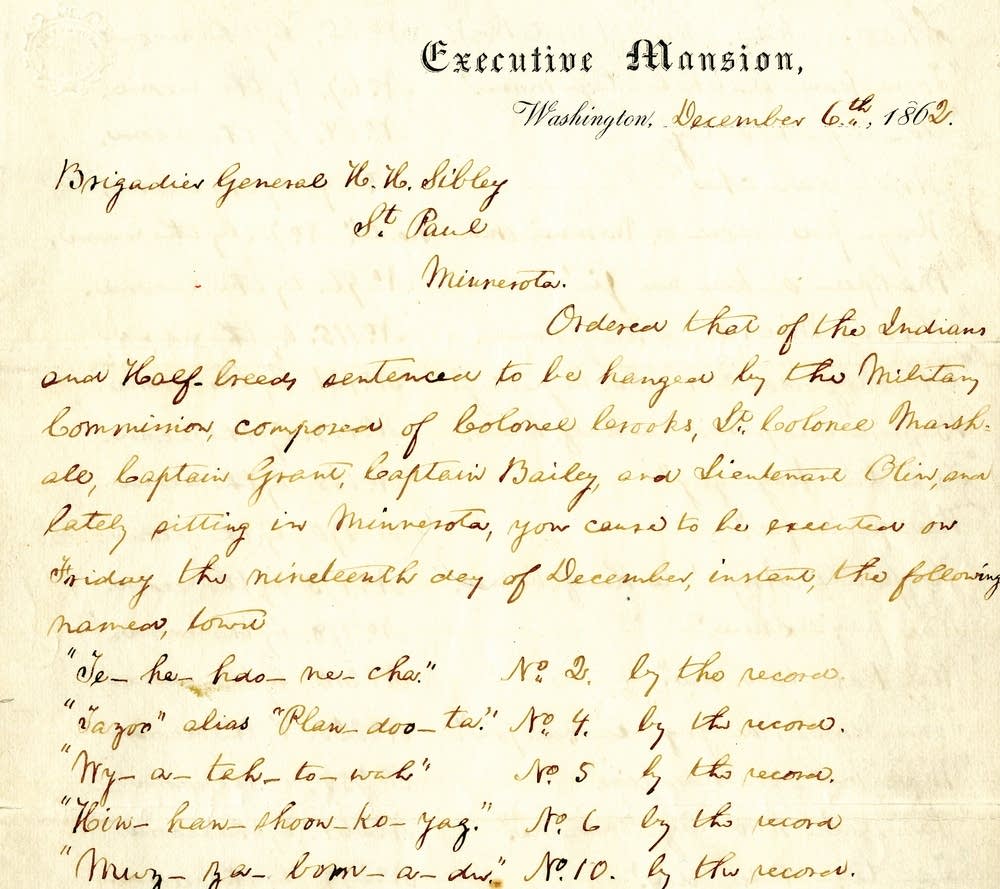 Executive Mansion,
Washington, December 6th, 1862.
Brigadier General H. H. Sibley
St. Paul
Minnesota.
Ordered that of the Indians
and Half-breeds sentenced to be hanged by the Military
Commission, composed of Colonel Crooks, Lt. Colonel Marsh-
all, Captain Grant, Captain Bailey, and Lieutenant Olin, and
lately sitting in Minnesota, you cause to be executed on
Friday the nineteenth day of December, instant, the following
named, towit
"Te-he-hdo-ne-cha." No. 2. by the record.
"Tazoo" alias "Plan-doo-ta." No. 4. by the record.
"Wy-a-teh-to-wah" No. 5 by the record.
"Hin-han-shoon-ko-yag." No. 6 by the record
"Muz-za-bom-a-du." No. 10. by the record.